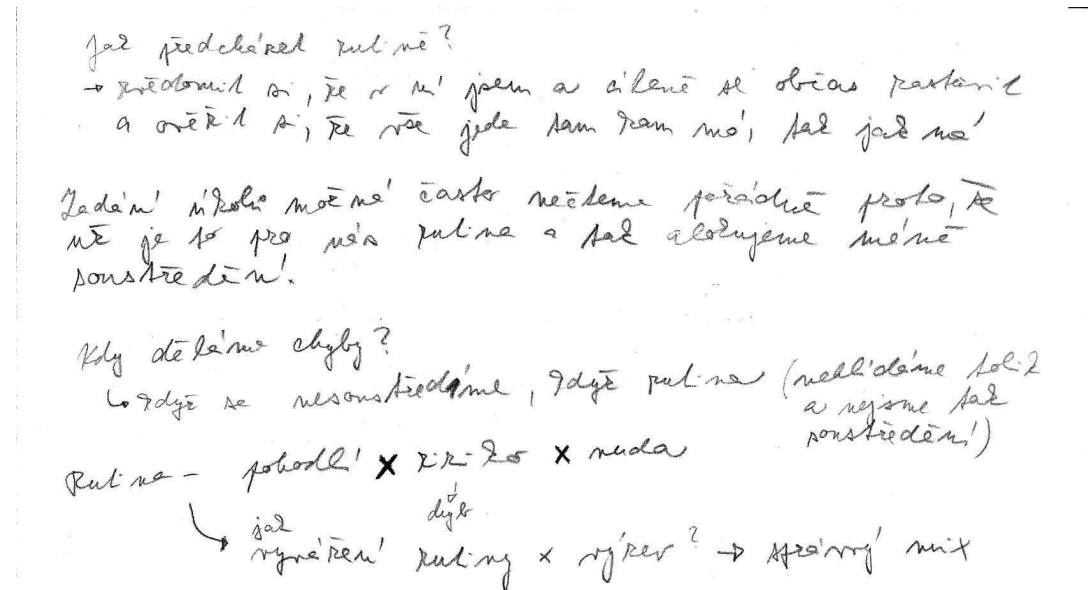 Jak předcházet rutině?
→ zvědomit si, že v ní jsem a cíleně se občas zastavit
a ověřit si, že vše jede tam kam má, tak jak má
Zadání úkolů možná často nečteme pořádně proto, že
už je to pro nás rutina a tak alokujeme méně
soustředění.
Kdy děláme chyby?
↳ když se nesoustředíme, když rutina (nehlídáme tolik
a nejsme tak
soustředění)
Rutina – pohodlí x riziko x nuda
chyb
jak
vyvážení rutiny x výzev? → správný mix